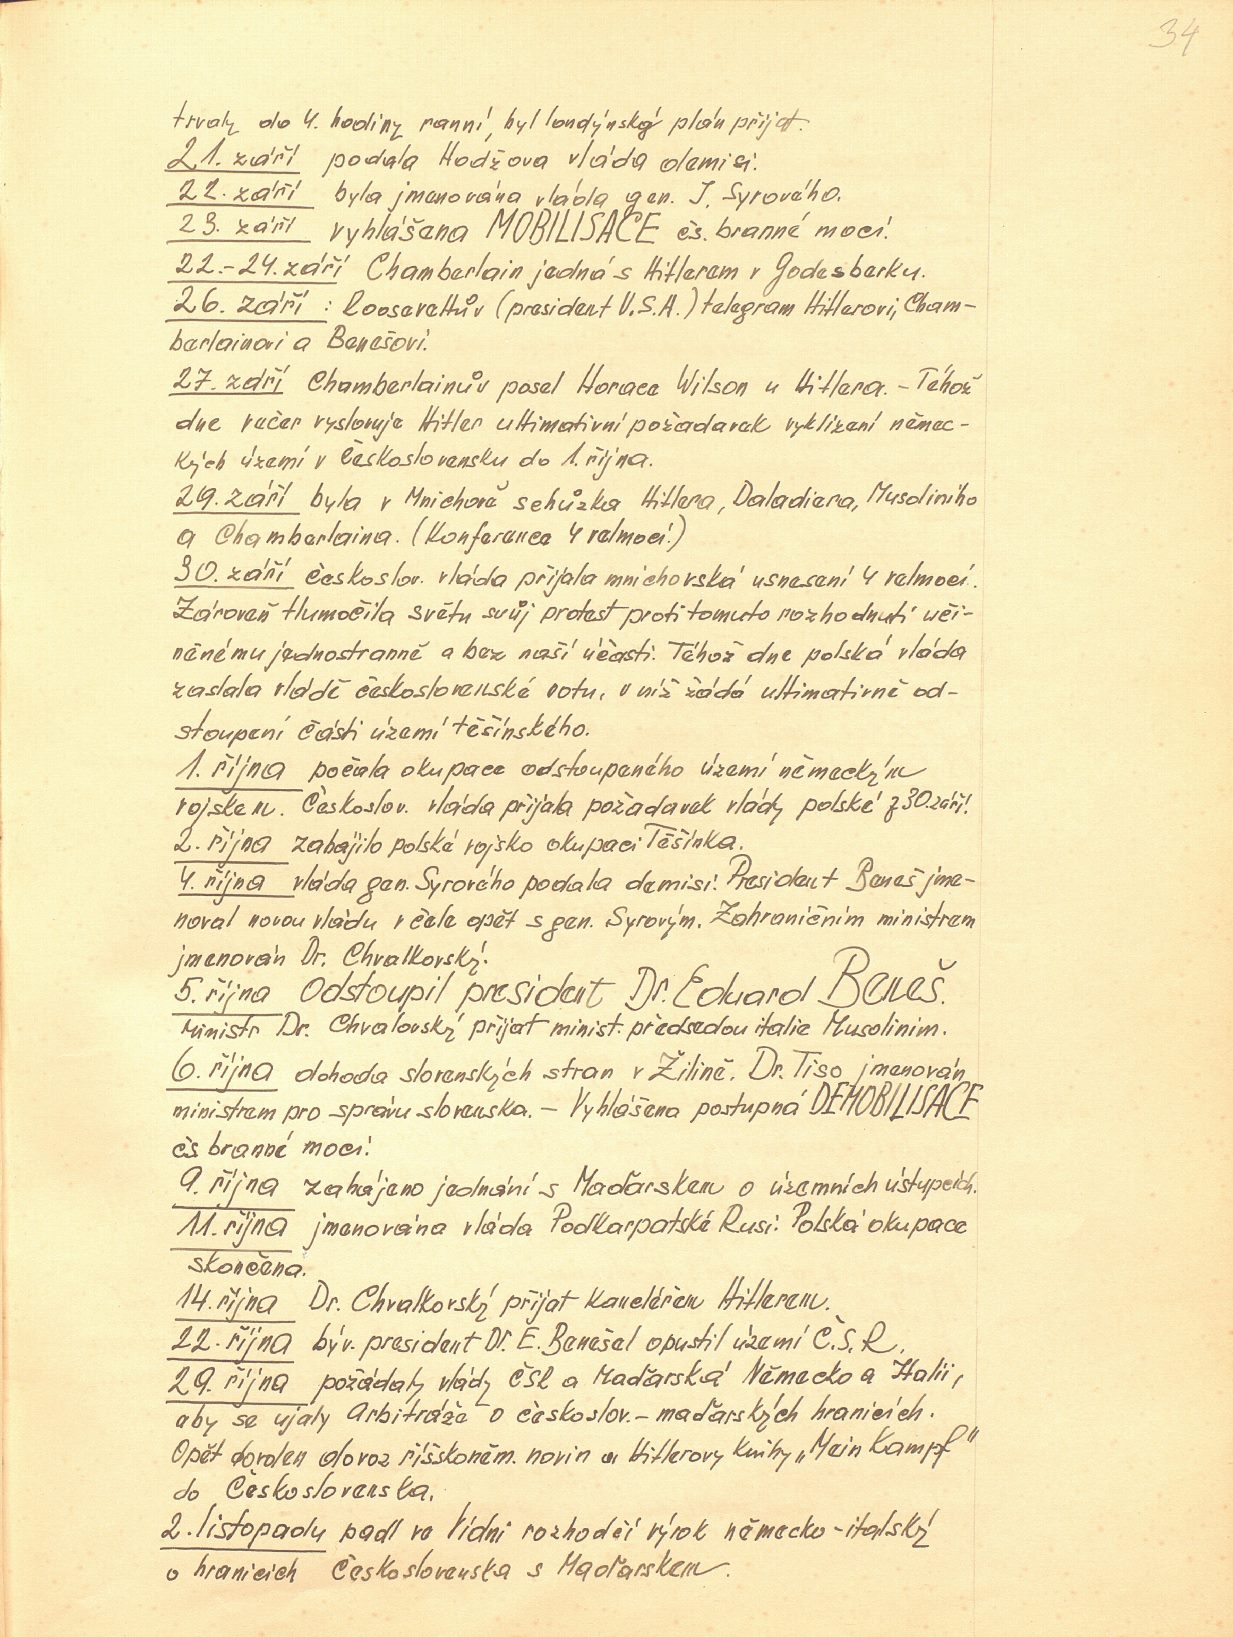 34
trvaly do 4. hodiny ranní, byl londýnský plán přijat.
21. září podala Hodžova vláda demisi.
22. září byla jmenována vláda gen. J. Syrového.
23. září vyhlášena MOBILISACE čs. branné moci.
22.-24. září Chamberlain jedná s Hitlerem v Godesberku.
26. září: Rooseveltův (president U.S.A.) telegram Hitlerovi, Cham-
berlainovi a Benešovi.
27. září Chamberlainův posel Horace Wilson u Hitlera. - Téhož
dne večer vyslovuje Hitler ultimativní požadavek vyklizení němec-
kých území v Československu do 1. října.
29. září byla v Mnichově schůzka Hitlera, Daladiera, Musoliniho
a Chamberlaina. (Konference 4 velmocí.)
30. září českoslov. vláda přijala mnichovská usnesení 4 velmocí.
Zároveň tlumočila světu svůj protest proti tomuto rozhodnutí uči-
něnému jednostranně a bez naší účasti. Téhož dne polská vláda
zaslala vládě československé notu, v níž žádá ultimativně od-
stoupení části území těšínského.
1. října počala okupace odstoupeného území německým
vojskem. Českoslov. vláda přijala požadavek vlády polské z 30. září.
2. října zahájilo polské vojsko okupaci Těšínka.
4. října vláda gen. Syrového podala demisi. President Beneš jme-
noval novou vládu v čele opět s gen. Syrovým. Zahraničním ministrem
jmenován Dr. Chvalkovský.
5. října Odstoupil president Dr. Eduard Beneš.
Ministr Dr. Chvalovský přijat minist. předsedou italie Musolinim.
6. října dohoda slovenských stran v Žilině. Dr. Tiso jmenován
ministrem pro správu slovenska. - Vyhlášena postupná DEMOBILISACE
čs branné moci.
9. října zahájeno jednání s Maďarskem o územních ústupcích.
11. října jmenována vláda Podkarpatské Rusi. Polská okupace
skončena.
14. října Dr. Chvalkovský přijat kancléřem Hitlerem.
22. října býv. president Dr. E. Benešel opustil území Č.S.R.
29. října požádaly vlády ČSR a Maďarská Německo a Itálii,
aby se ujaly Arbitráže o českoslov.- maďarských hranicích.
Opět dovolen dovoz říšskoněm. novin a Hitlerovy knihy „Mein Kampf"
do Československa.
2. listopadu padl ve Vídni rozhodčí výrok německo-italský
o hranicích Československa s Maďarskem.